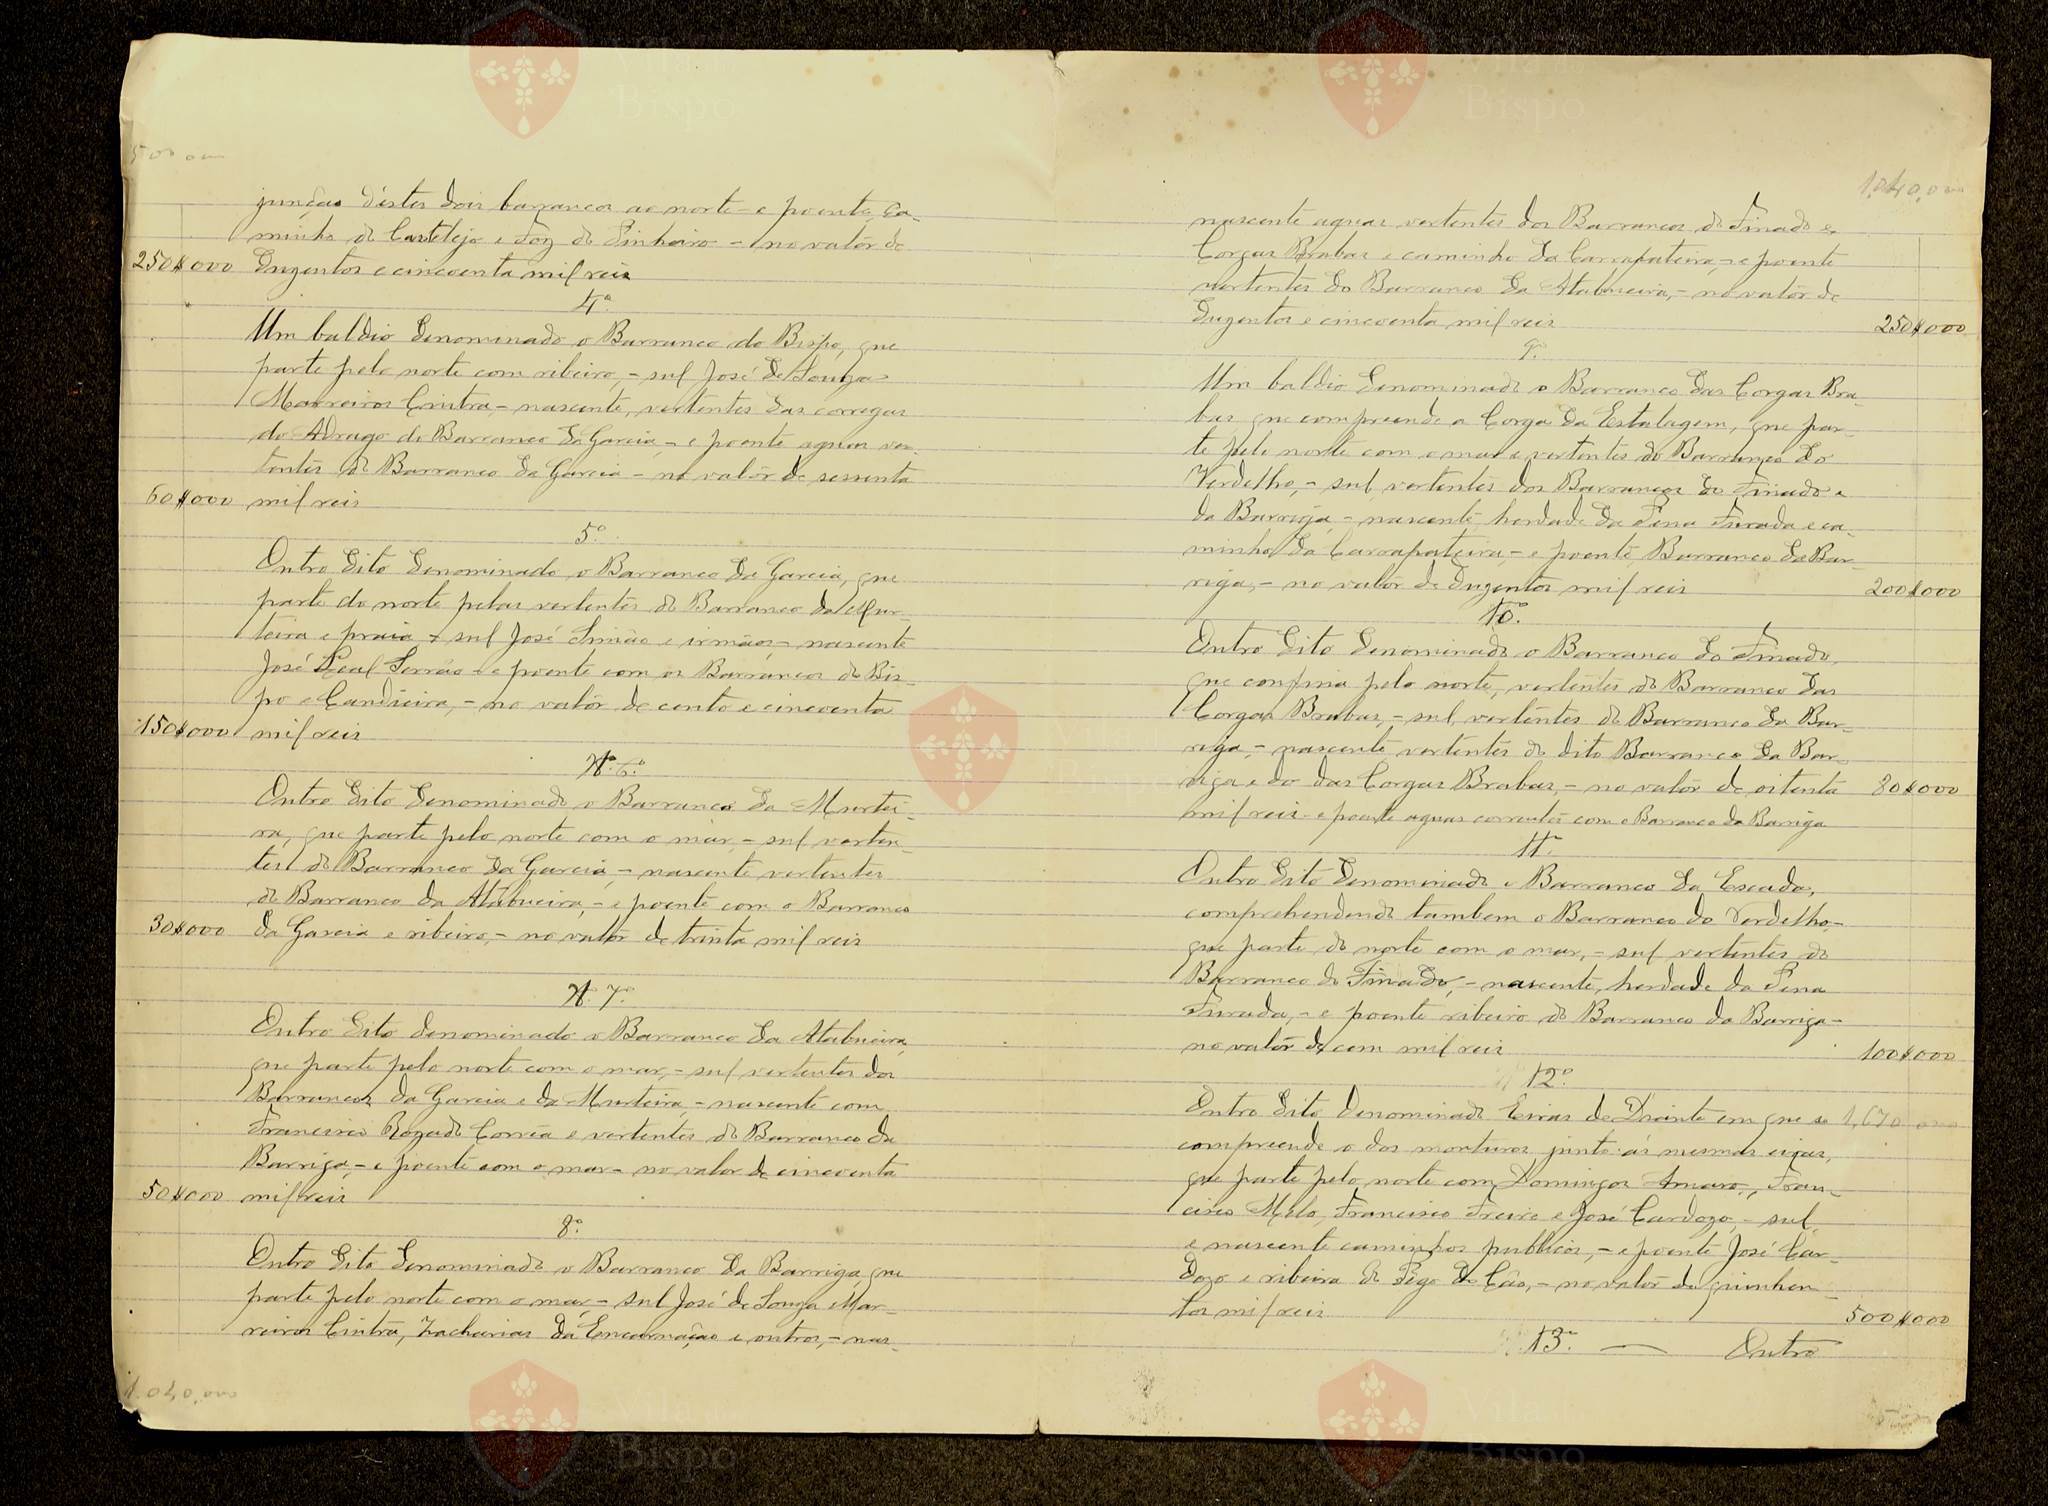 Vila do
Bispo
Vila do
Bispo
500 000
junção d'éstes dois barrancos ao norte e poente, ca-
minho do Castelejo e Foz do Pinheiro - no valôr de
250$000 Duzentos e cincoenta mil reis
4º
Um baldio denominado o Barranco do Bispo, que
parte pelo norte com ribeiro, - sul José de Souza
Marreiros Cintra, - nascente, vertentes das corregas
do Adrago do Barranco da Garcia, - e poente aguas ver-
tentes do Barranco da Garcia - no valôr de sessenta
60$000 mil reis
5º
Outro dito denominado o Barranco da Garcia, que
parte do norte pelas vertentes do Barranco da Mur-
teira e praia, - sul José Simão e irmãos, - nascente
José Leal Serrão - e poente com os Barrancos do Bis-
po e Candieira, - no valôr de cento e cincoenta
150$000 mil reis
Nº 6º
Outro dito denominado o Barranco da Murtei-
ra, que parte pelo norte com o mar, - sul verten-
tes do Barranco da Garcia, - nascente vertentes
do Barranco da Atabueira, - e poente com o Barranco
30$000 da Garcia e ribeiro, - no valôr de trinta mil reis
Nº 7º
Outro dito denominado o Barranco da Atabueira,
que parte pelo norte com o mar, - sul vertentes dos
Barrancos da Garcia e da Murteira, - nascente com
Francisco Rozado Corrêa e vertentes do Barranco da
Barriga, - e poente com o mar - no valor de cincoenta
50$000 mil reis
8º
Outro dito denominado o Barranco da Barriga, que
parte pelo norte com o mar, - sul José de Souza Mar-
reiros Cintra, Zacharias da Encarnação e outros, - nas-
1.040,000
1.040,000
nascente aguas vertentes dos Barrancos do Finado e
Corgas Brabas e caminho da Carrapateira, - e poente
vertentes do Barranco da Atabueira, - no valôr de
Duzentos e cincoenta mil reis 250$000
9º
Um baldio denominado o Barranco das Corgas Bra-
bas, que compreende a Corga da Estalagem, que par-
te pelo norte com o mar e vertentes do Barranco do
Verdelho, - sul vertentes dos Barrancos do Finado e
da Barriga, - nascente, herdade da Pena Furada e ca-
minho da Carrapateira, - e poente, Barranco da Bar-
riga, - no valôr de Duzentos mil reis 200$000
10º
Outro dito denominado o Barranco do Finado,
que confina pelo norte, vertentes do Barranco das
Corgas Brabas, - sul, vertentes do Barranco da Bar-
riga, - nascente vertentes do dito Barranco da Bar-
riga e do das Corgas Brabas, - no valôr de oitenta 80$000
mil reis - e poente aguas correntes com o Barranco da Barriga
11º
Outro dito denominado o Barranco da Escada,
comprehendendo tambem o Barranco do Verdelho,
que parte do norte com o mar, - sul vertentes do
Barranco do Finado, - nascente, herdade da Pena
Furada, - e poente ribeiro do Barranco da Barriga -
no valôr de cem mil reis 100$000
12º
Outro dito denominado Eiras de Diante em que se 1,670 000
compreende o dos monturos junto ás mesmas eiras,
que parte pelo norte com Domingos Amaro, Fran-
cisco Melo, Francisco Freire e José Cardozo, - sul
e nascente caminhos publicos, - e poente José Car-
dozo e ribeira do Pego do Cão, - no valôr de quinhen-
tos mil reis 500$000
13º — Outro
Vila do
Bispo
Vila do
Bispo